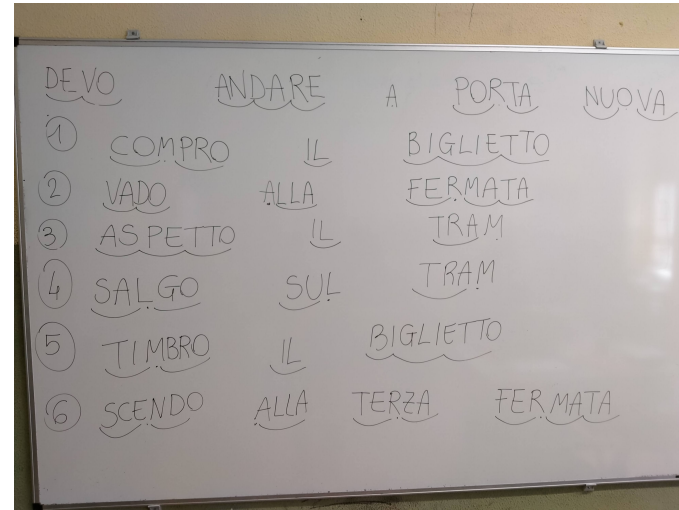 DEVO ANDARE A PORTA NUOVA
1 COMPRO IL BIGLIETTO
2 VADO ALLA FERMATA
3 ASPETTO IL TRAM
4 SALGO SUL TRAM
5 TIMBRO IL BIGLIETTO
6 SCENDO ALLA TERZA FERMATA